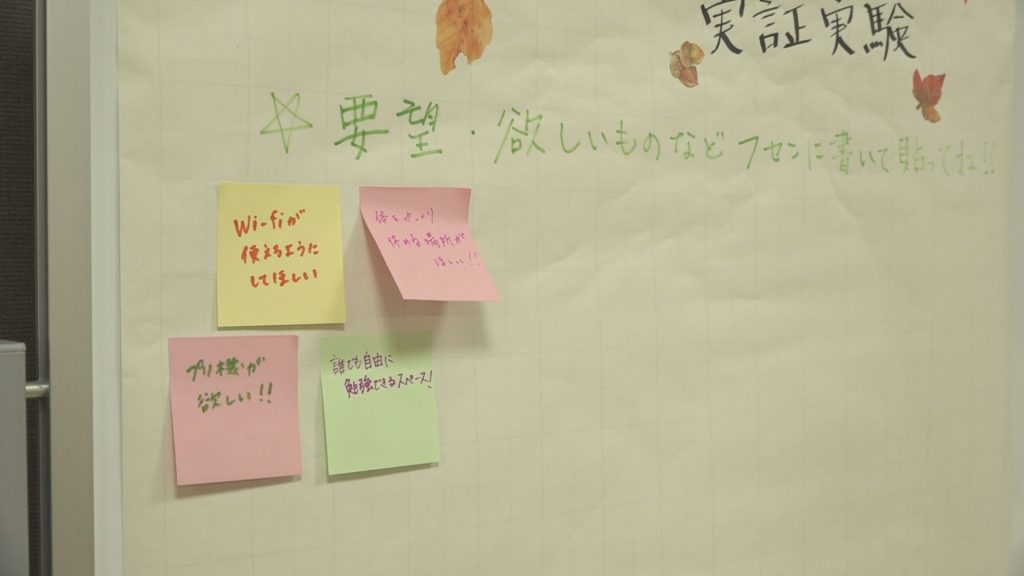 実証実験
☆要望・欲しいものなどフセンに書いて貼ってね!!
Wi-fiが
使えるように
してほしい
休める場所が
ほしい!!
プリ機が
欲しい!!
誰でも自由に
勉強できるスペース!